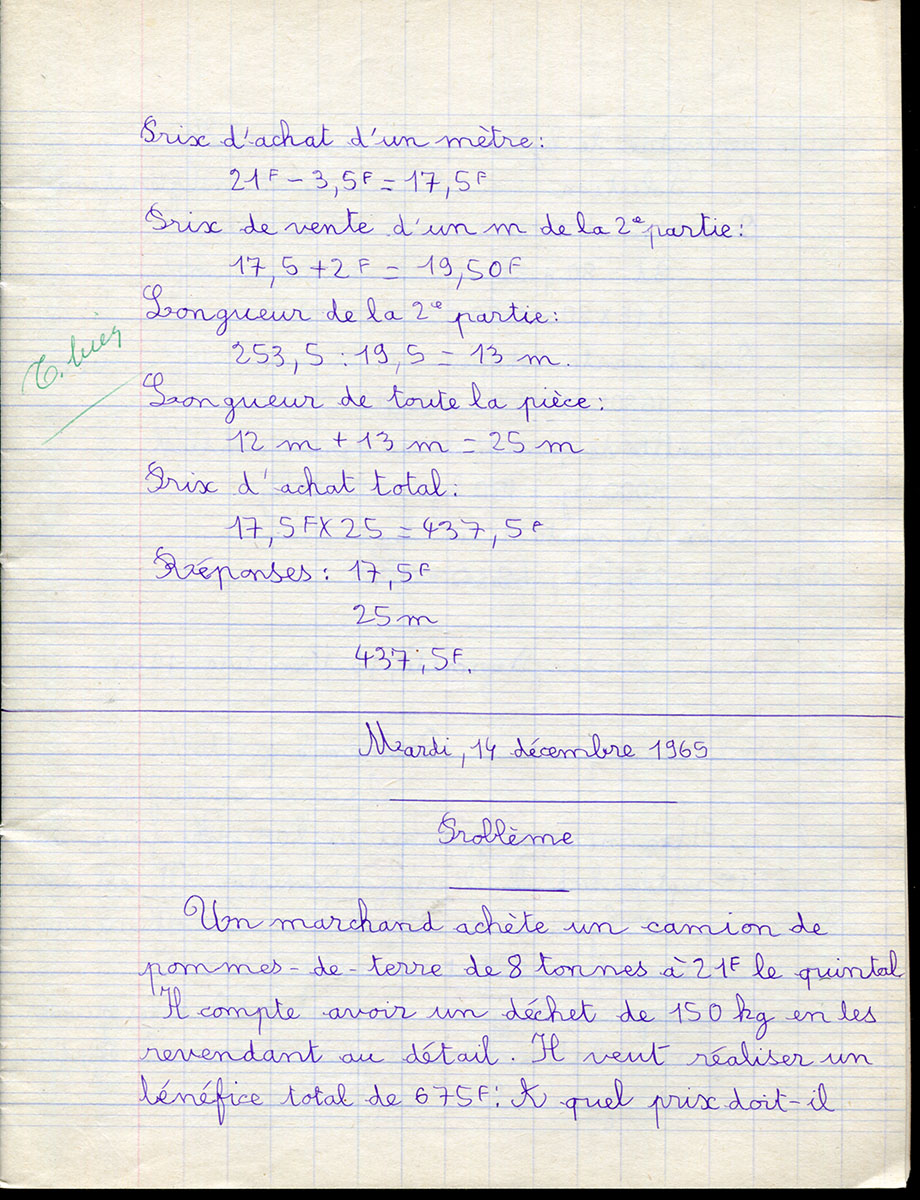 Prix d'achat d'un mètre:
21F - 3,5F = 17,5F
Prix de vente d'un m de la 2e partie:
17,5 + 2F = 19,50F
Longueur de la 2e partie:
253,5 : 19,5 = 13 m.
T. bien
Longueur de toute la pièce:
12 m + 13 m = 25 m
Prix d'achat total:
17,5F X 25 = 437,5F
Réponses: 17,5F
25 m
437,5F.
Mardi, 14 décembre 1965
Problème
Un marchand achète un camion de
pommes-de-terre de 8 tonnes à 21F le quintal
Il compte avoir un déchet de 150 kg en les
revendant au détail. Il veut réaliser un
bénéfice total de 675F: A quel prix doit-il